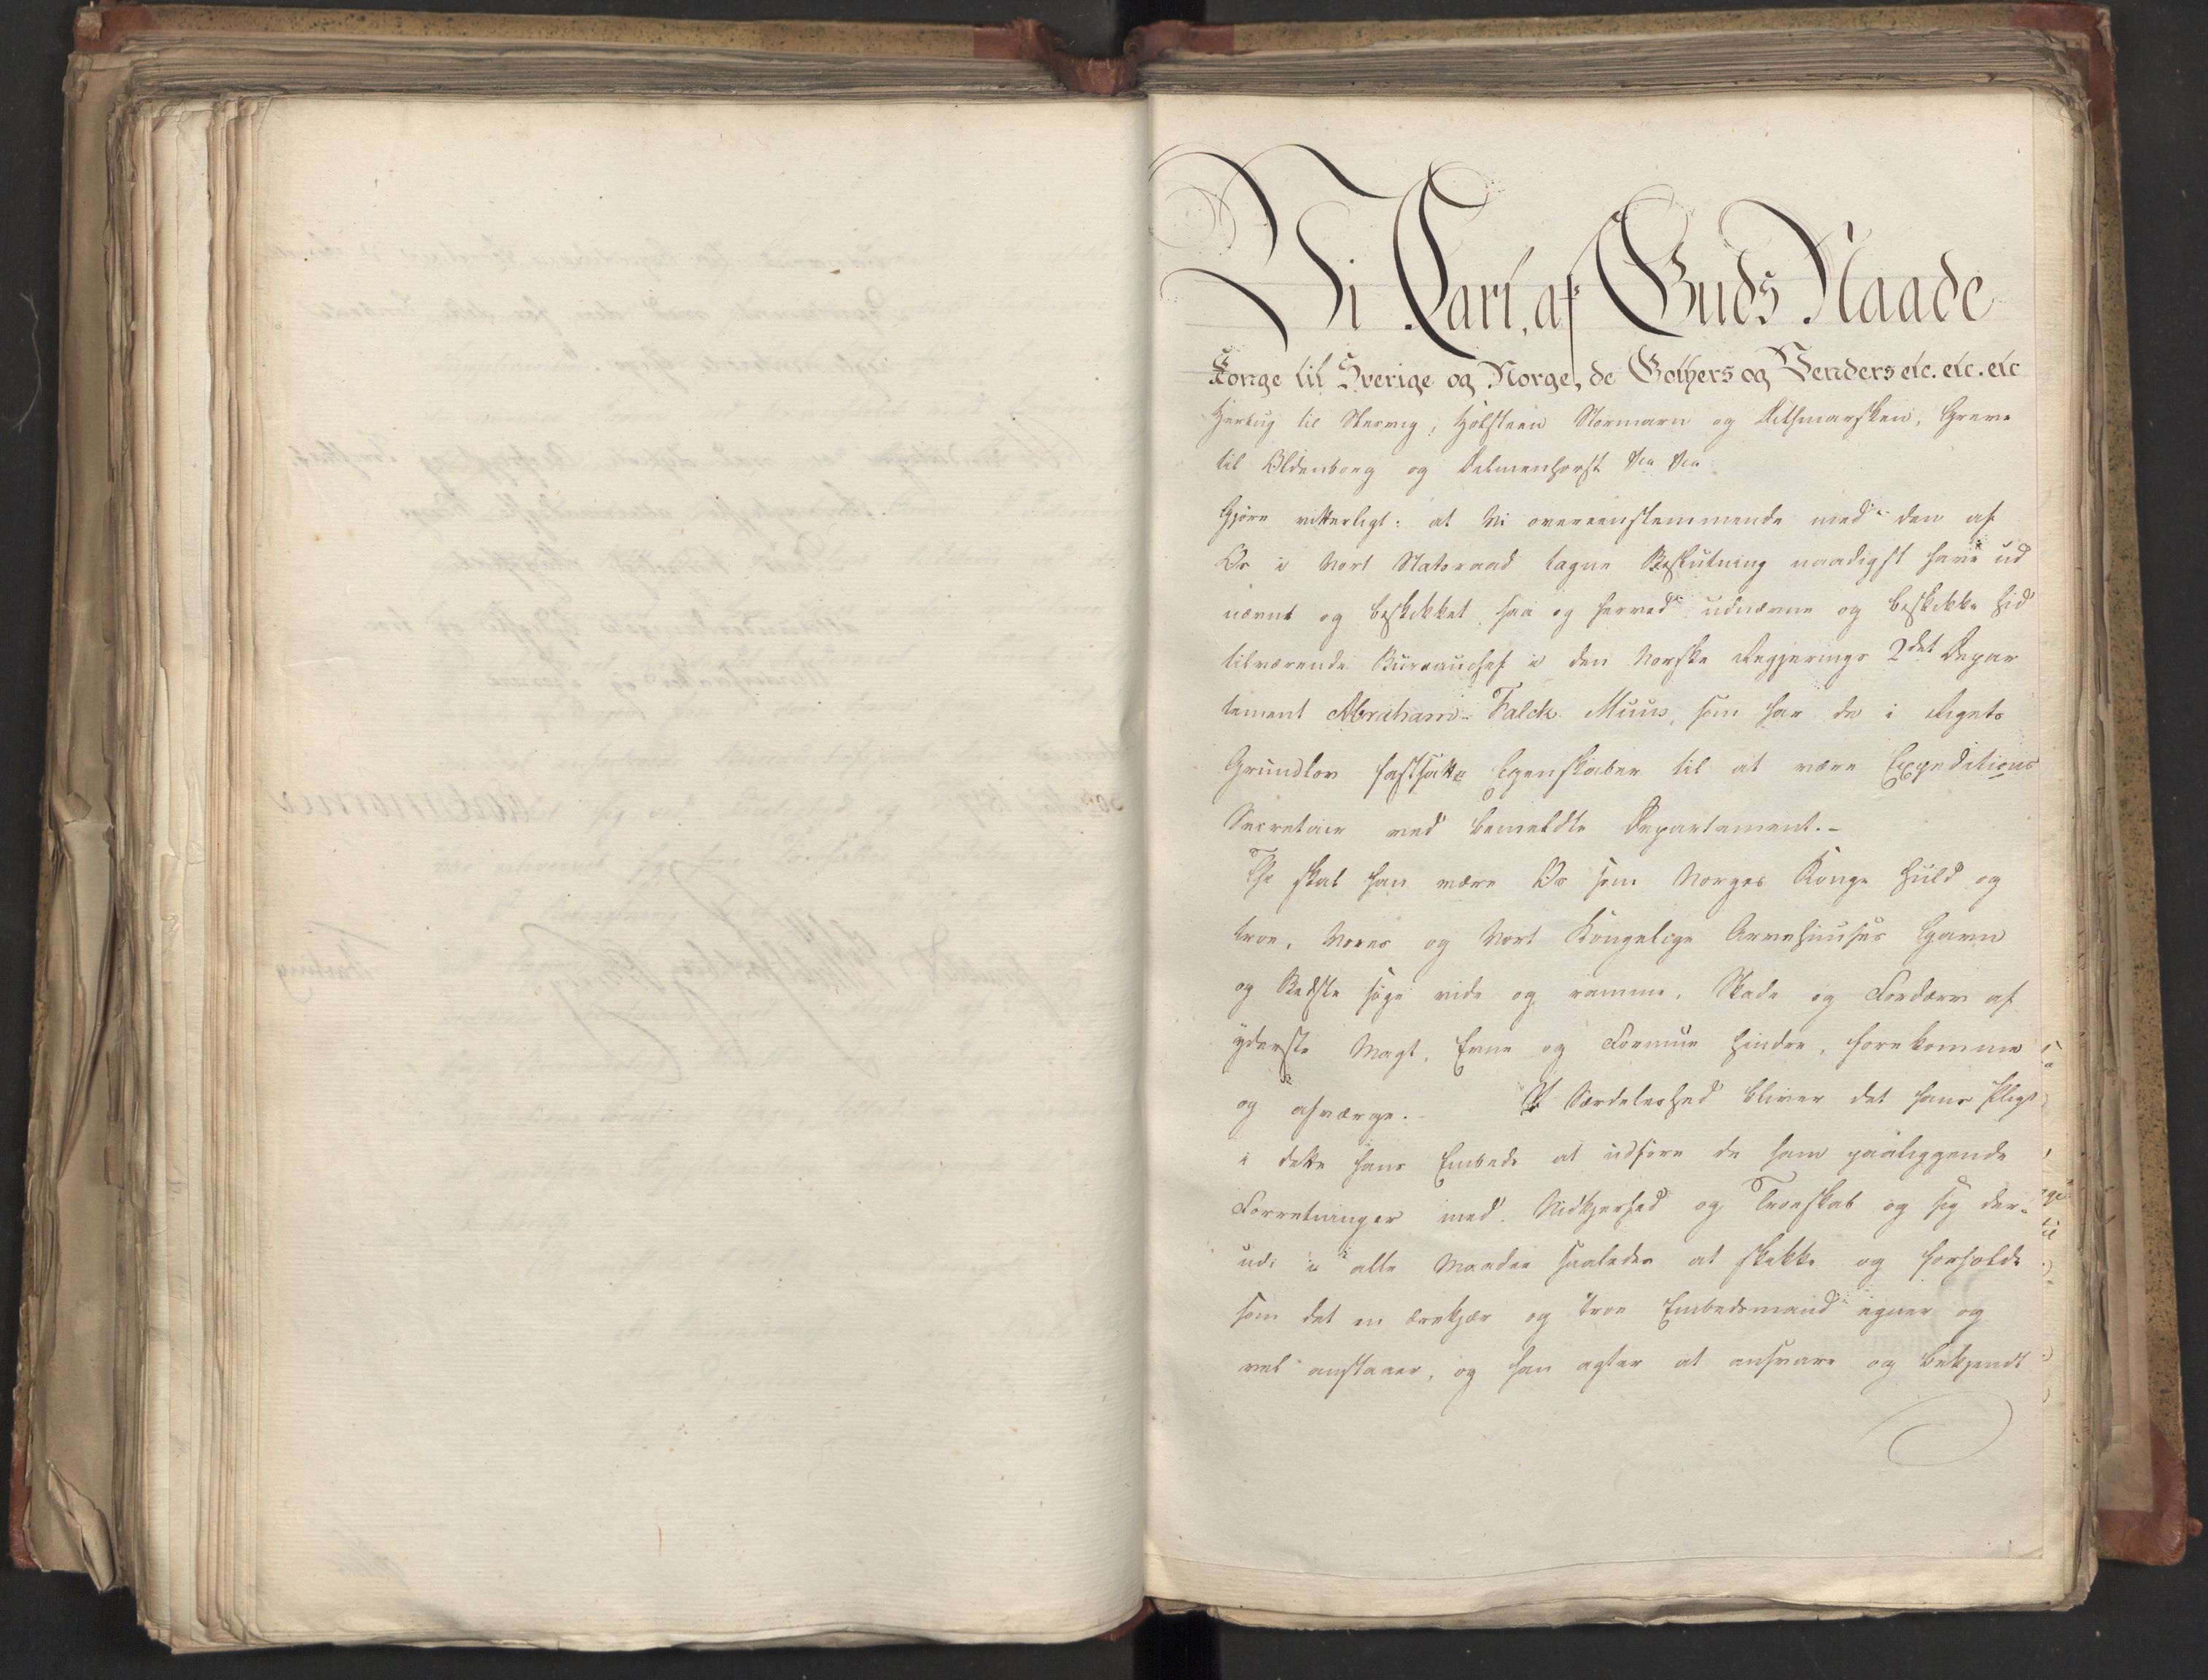 Vi Carl, af Guds Naade
Konge til Sverige og Norge, de Gothers og Venders etc. etc. etc
Hertug til Slesvig, Holsteen Stormarn og Dithmarsken, Greve
til Oldenborg og Delmenhorst &c &c
Gjøre vitterligt: at Vi overeenstemmende med den af
Os i Vort Statsraad tagne Beslutning naadigst have ud
nævnt og beskikket saa og herved udnævne og beskikke hid
tilværende Bureauchef i den Norske Regjerings 2det Depar
tement Abraham Falck Muus, som har de i Rigets
Grundlov fastsatte Egenskaber til at være Expeditions
Secretair ved bemeldte Departement.-
Thi skal han være Os som Norges Konge huld og
troe, Vores og Vort Kongelige Arvehuuses Gavn
og Bedste søge vide og ramme, Skade og Fordærv af
yderste Magt, Evne og Formue hindre, forekomme
og afværge.- I Særdeleshed bliver det hans Pligt
i dette hans Embede at udføre de ham paaliggende
Forretninger med Nidkjerhed og Troeskab og sig der-
udi i alle Maader saaledes at skikke og forholde
som det en ærekjær og troe Embedsmand egner og
vel anstaaer, og han agter at ansvare og bekjendt